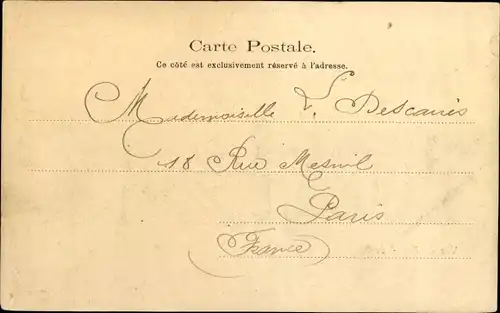 Carte Postale.
Ce côté est exclusivement réservé à l'adresse.
Mademoiselle L. Descaves
18 Rue Mesnil
Paris
(France)